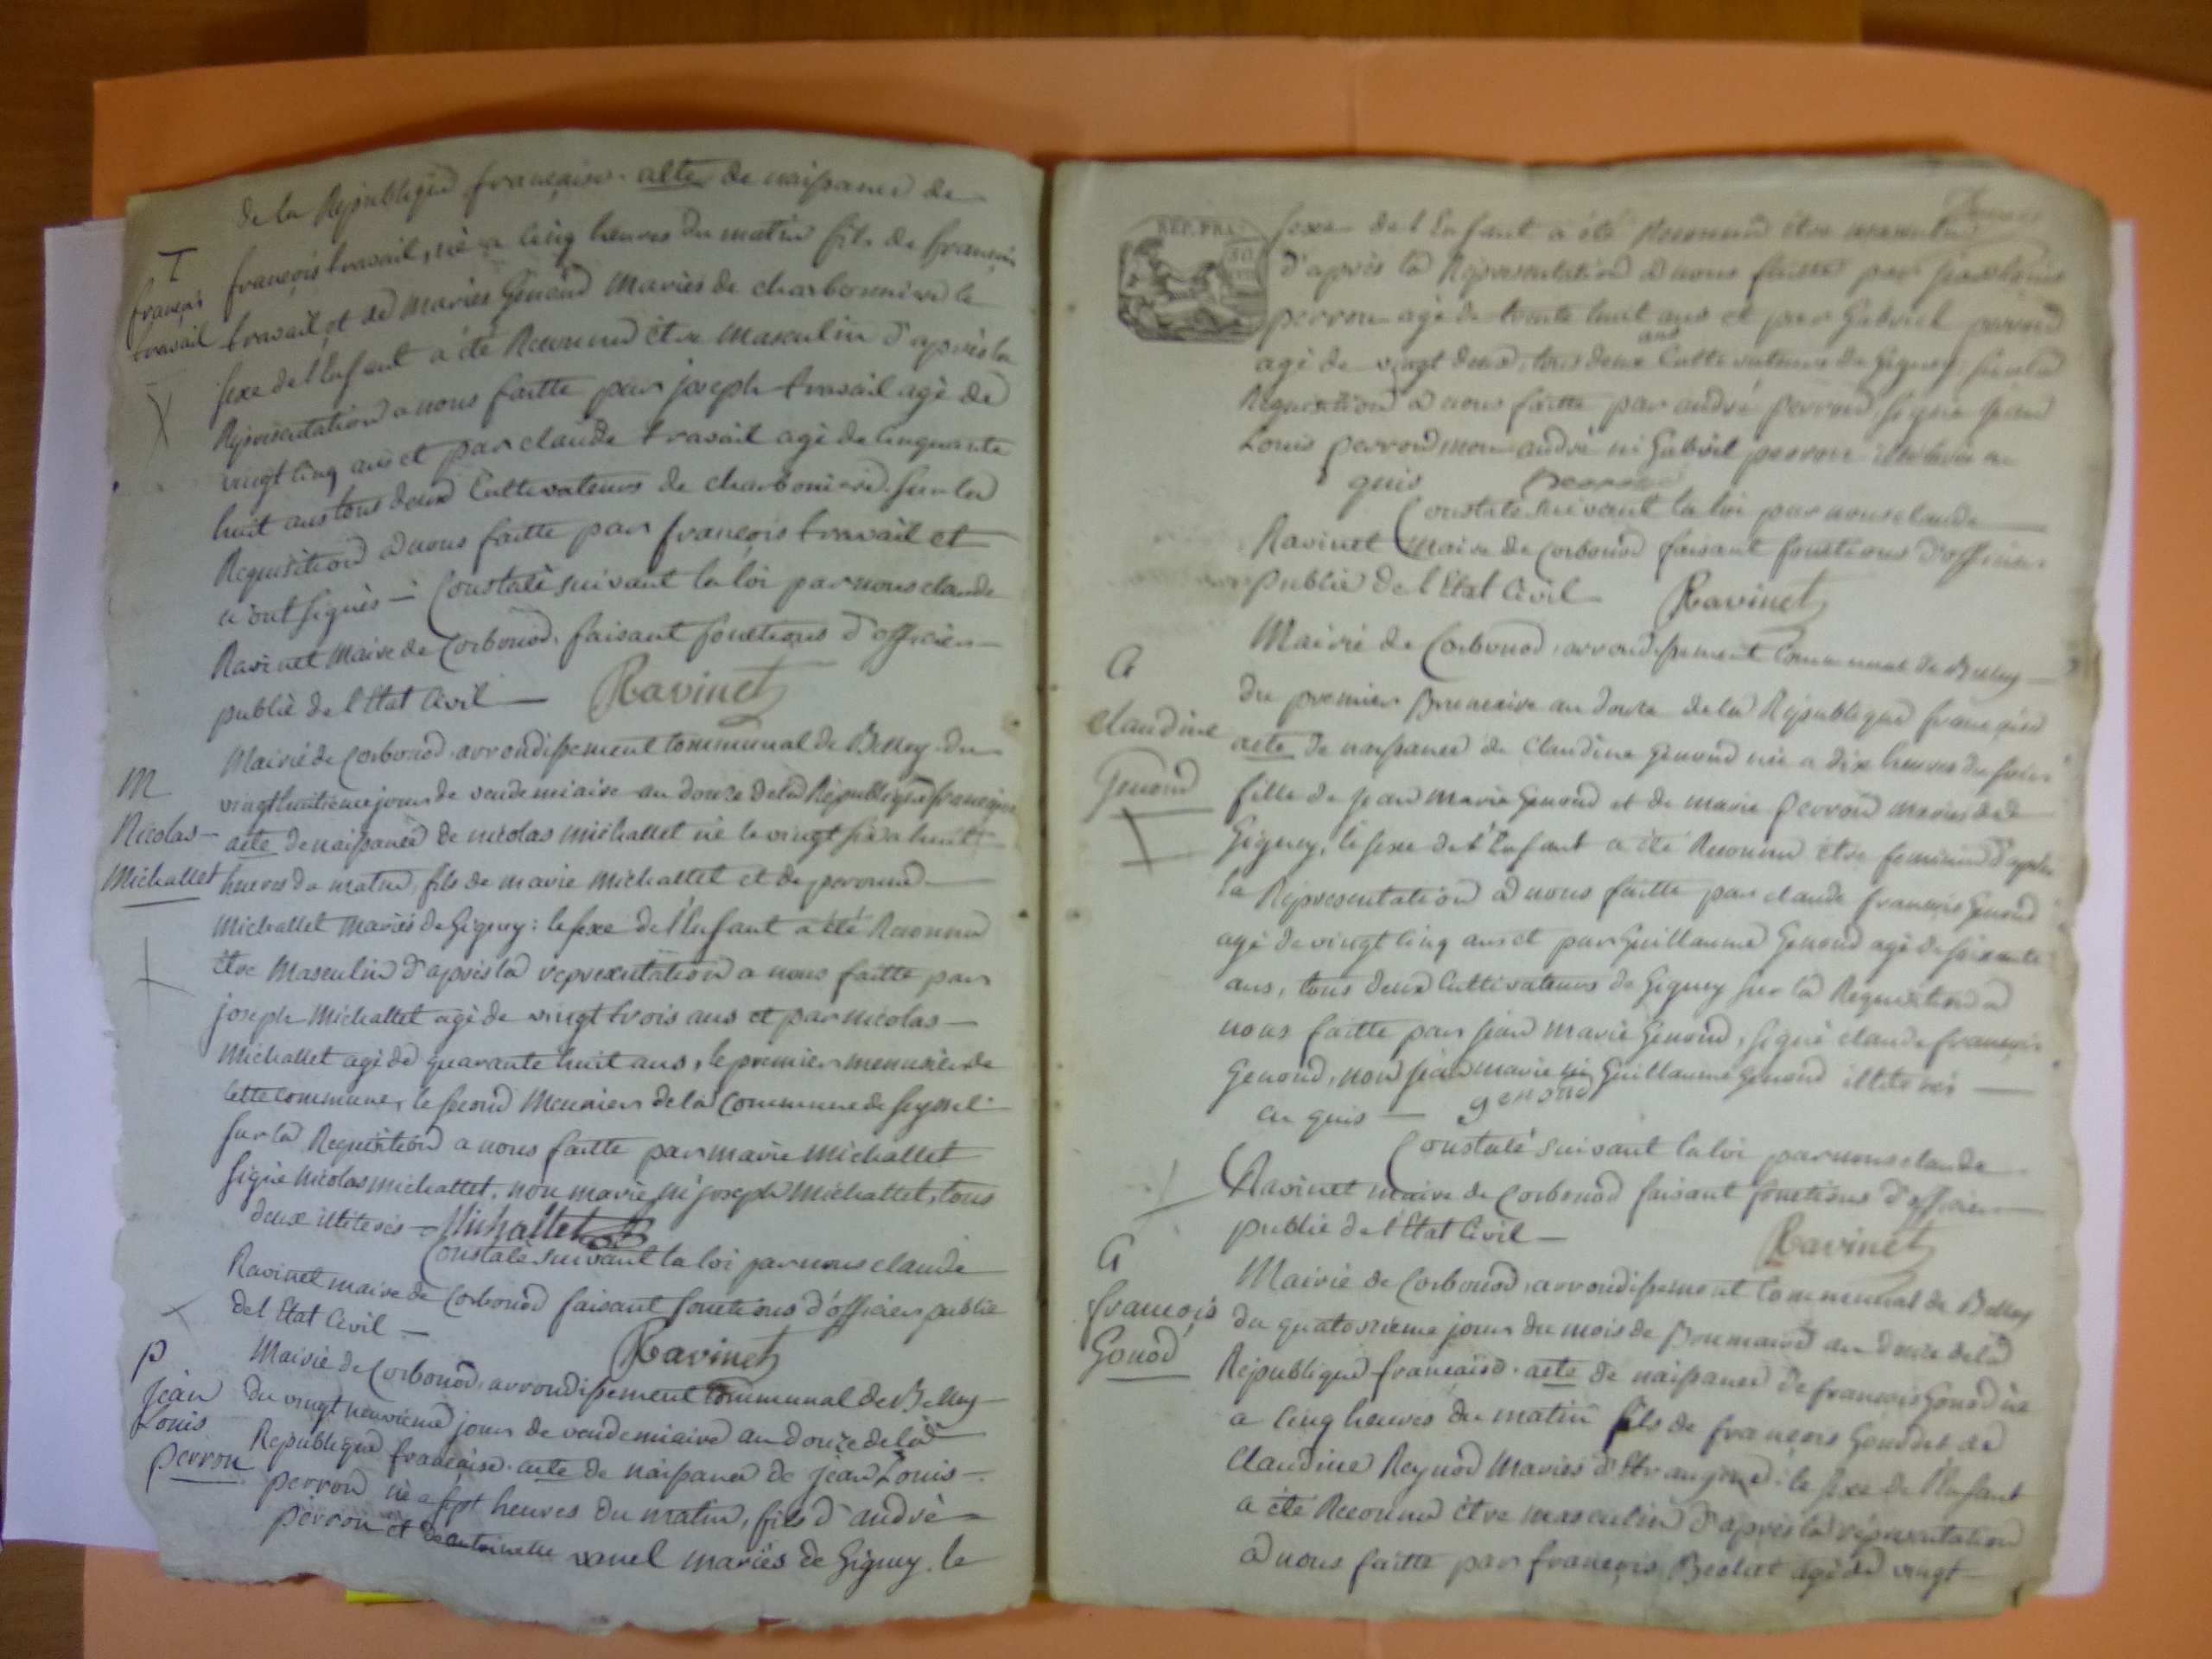 de la République française. acte de naissance de
T
françois
travail
françois travail, né a cinq heures du matin fils de françois
travail et de Maries Genoud Mariés de charbonniere le
sexe de l'Enfant a été Reconnu être Masculin d'après la
Représentation a nous faitte par joseph travail agé de
vingt cinq ans et par claude travail agé de cinquante
huit ans tous deux Cultivateurs de charboniere sur la
Requisition a nous faitte par françois travail et
n'ont signés - Constaté suivant la loi par nous claude
Ravinet Maire de Corbonod, faisant fonctions d'officier
public de l'Etat Civil - Ravinet
M
Nicolas
Michallet
Mairie de Corbonod, arrondissement Communal de Belley du
vingt huitieme jour de vendemiaire an douze de la République française
acte de naissance de nicolas michallet né le vingt six a huit
heures du matin, fils de marie Michallet et de peronne
Michallet Mariés de Gignez : le sexe de l'Enfant a été Reconnu
être Masculin d'après la representation a nous faitte par
joseph Michallet agé de vingt trois ans et par nicolas
Michallet agé de quarante huit ans, le premier menusier de
cette commune, le second Meunier de la Commune de seyssel
sur la Requisition a nous faitte par marie Michallet
signé nicolas michallet, non marie ni joseph Michallet, tous
deux illiterés - Michallet
Constaté suivant la loi par nous claude
Ravinet maire de Corbonod faisant fonctions d'officier public
de l'Etat Civil -
Ravinet
P
Jean
Louis
perron
Mairie de Corbonod, arrondissement Communal de Belley
du vingt neuvieme jour de vendemiaire an douze de la
République française. acte de naissance de jean Louis
perron né a sept heures du matin, fils d'andré
perron et de antoinette vanel mariés de Gignez. le
REP. FRA.
sexe de l'Enfant a été Reconnu être masculin
d'après la Représentation a nous faitte par jean louis
perron agé de trente huit ans et par Gabriel perron
agé de vingt deux ans, tous deux Cultivateurs de Gignez, sur la
Requisition a nous faitte par andré perron signé jean
Louis perron non andré ni Gabriel perron illiterés en
quis perron
Constaté suivant la loi par nous claude
Ravinet Maire de Corbonod faisant fonctions d'officier
public de l'Etat Civil Ravinet
G
claudine
Genoud
Mairie de Corbonod, arrondissement Communal de Belley
du premier Brumaire an douze de la République française
acte de naissance de Claudine Genoud née a dix heures du soir
fille de jean marie Genoud et de marie perron mariés de
Gignez, le sexe de l'Enfant a été Reconnu être feminin d'après
la Représentation a nous faitte par claude francois Genoud
agé de vingt cinq ans et par Guillaume Genoud agé de soixante
ans, tous deux Cultivateurs de Gignez sur la Requisition a
nous faitte par jean marie Genoud, signé claude francois
Genoud, non jean marie ni Guillaume genoud illiterés
en quis - genoud
Constaté suivant la loi par nous claude
Ravinet maire de Corbonod faisant fonctions d'officier
public de l'Etat Civil -
Ravinet
G
françois
Gonod
Mairie de Corbonod, arrondissement Communal de Belley
du quatorzieme jour du mois de Brumaire an douze de la
République française. acte de naissance de francois Gonod né
a cinq heures du matin fils de francois Gonod et de
Claudine Reynod Mariés d'Etrangine : le sexe de l'Enfant
a été Reconnu être masculin d'après la représentation
a nous faitte par françois agé de vingt